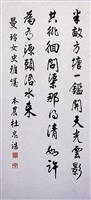 半畝方塘一鑑開天光雲影
共徘徊問渠那得清如許
為有源頭活水來
曼玲女史雅囑 本農杜忠誥